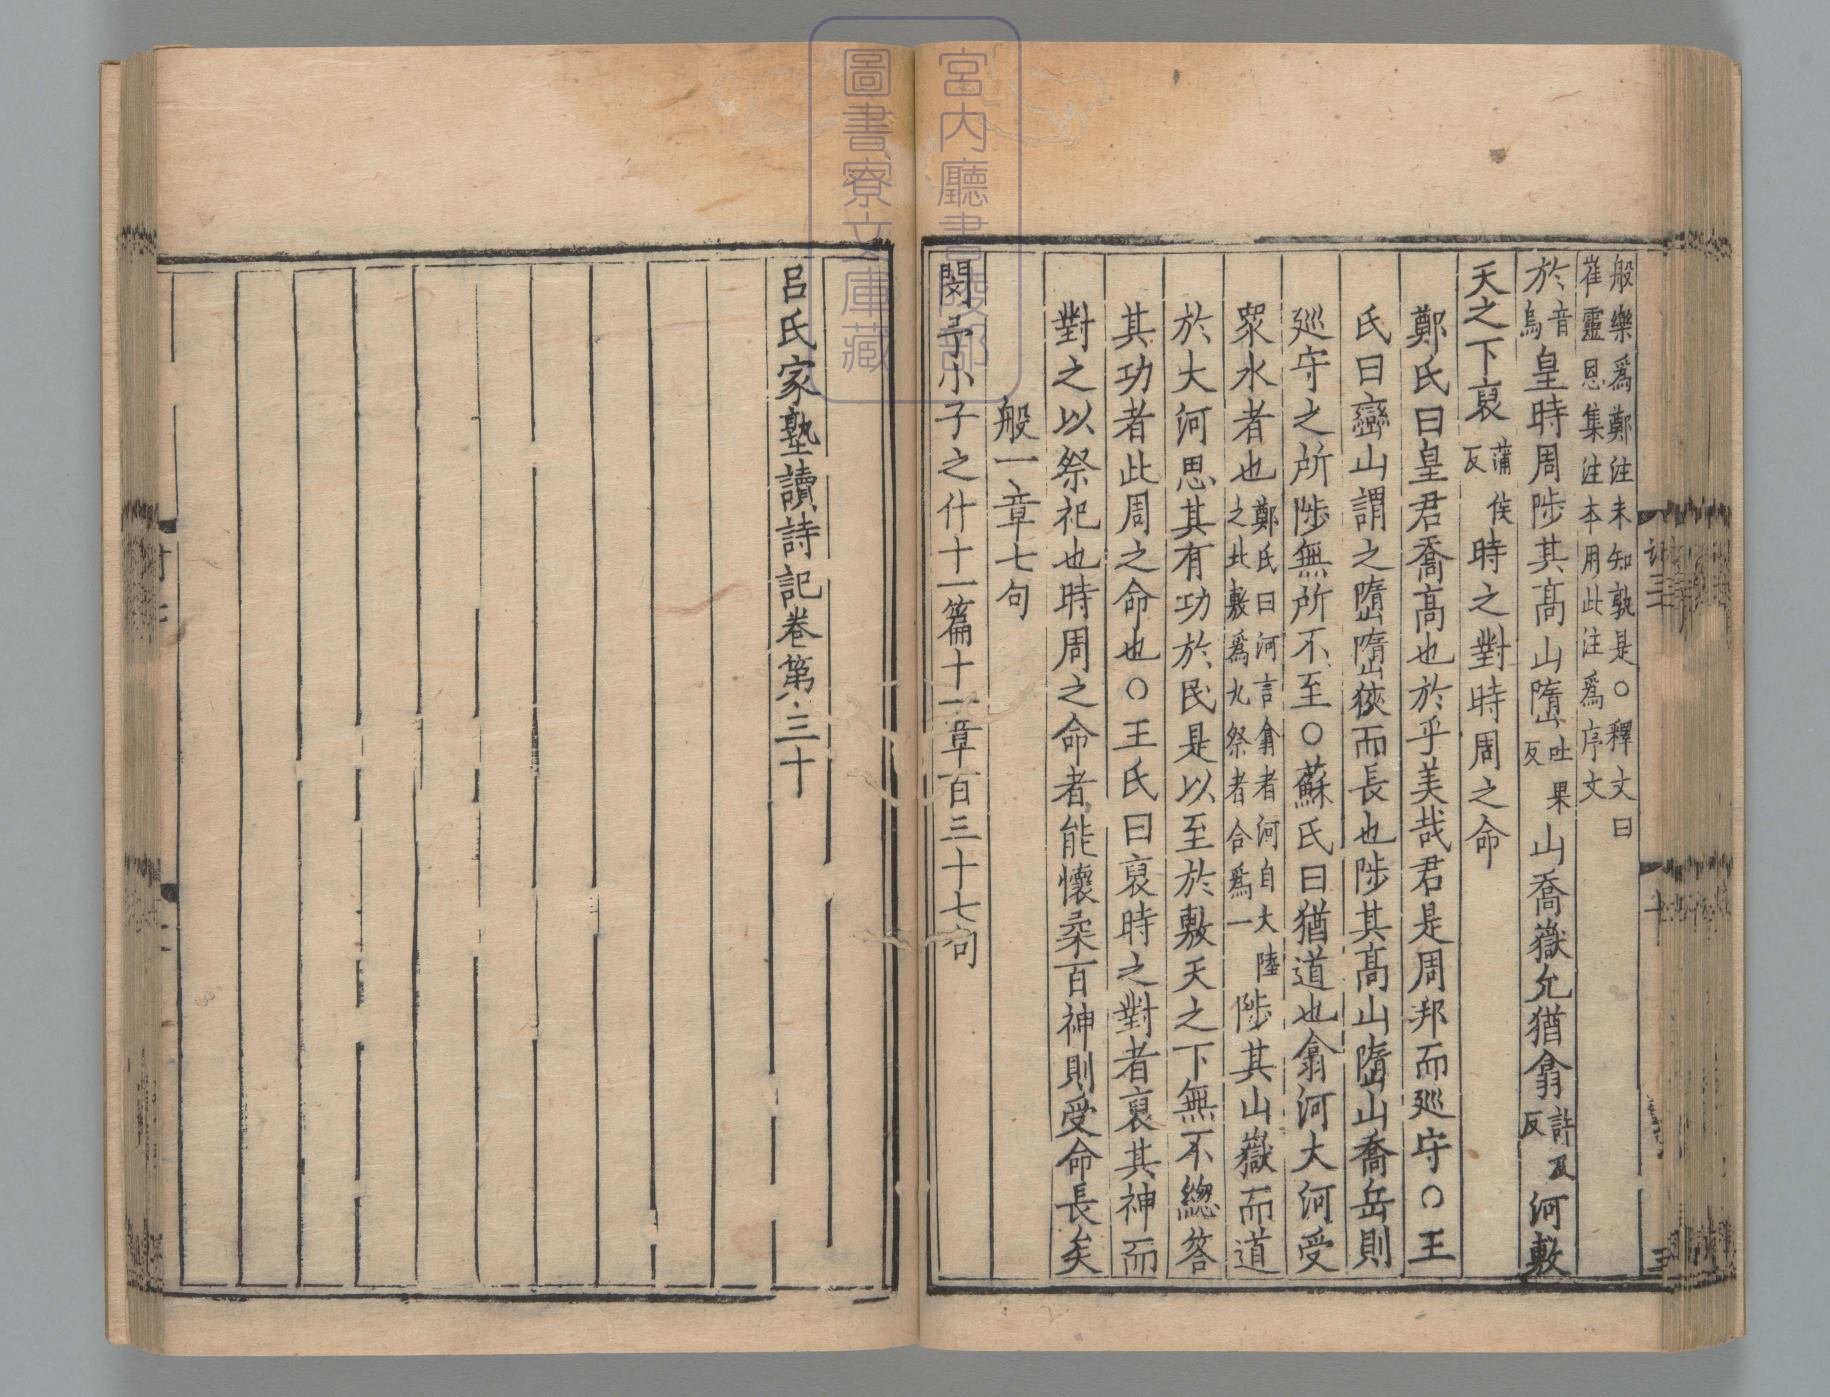 般樂爲鄭注未知孰是○釋文曰
崔靈恩集注本用此注爲序文
於音烏皇時周陟其髙山嶞吐果反山喬嶽允猶翕許及反河敷
天之下裒蒲侯反時之對時周之命
鄭氏曰皇君喬髙也於乎美哉君是周邦而廵守○王
氏曰巒山謂之嶞嶞狹而長也陟其髙山嶞山喬岳則
廵守之所陟無所不至○蘇氏曰猶道也翕河大河受
衆水者也鄭氏曰河言翕者河自大陸之北敷爲九祭者合爲一陟其山嶽而道
於大河思其有功於民是以至於敷天之下無不緫答
其功者此周之命也○王氏曰裒時之對者裒其神而
對之以祭祀也時周之命者能懷柔百神則受命長矣
般一章七句
閔予小子之什十一篇十一章百三十七句
呂氏家塾讀詩記卷第三十
宮内廳書陵部
圖書寮文庫藏